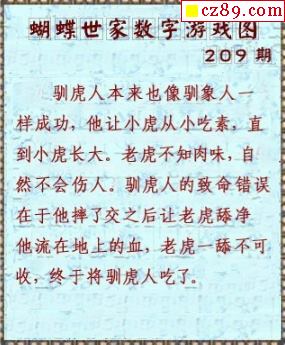 cz89.com
蝴蝶世家数字游戏图
209期
驯虎人本来也像驯象人一
样成功，他让小虎从小吃素，直
到小虎长大。老虎不知肉味，自
然不会伤人。驯虎人的致命错误
在于他摔了交之后让老虎舔净
他流在地上的血，老虎一舔不可
收，终于将驯虎人吃了。